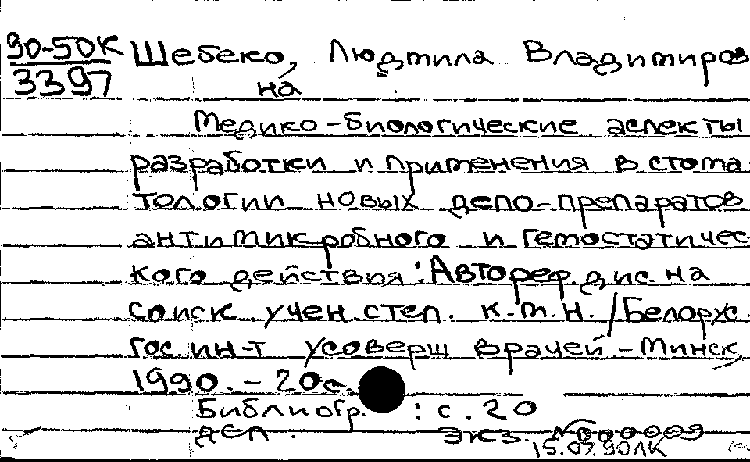 90-50К Шебеко, Людмила Владимиров
3397 на
Медико-биологические аспекты
разработки и применения в стома
тологии новых депо-препаратов
антимикробного и гемостатичес
кого действия: Автореф. дис. на
соиск. учен. степ. к.м.н. / Белорус.
гос. ин-т усоверш. врачей. - Минск,
1990. - 20с.
Библиогр. : с. 20
деп. экз. №000009
15.07.90ЛК